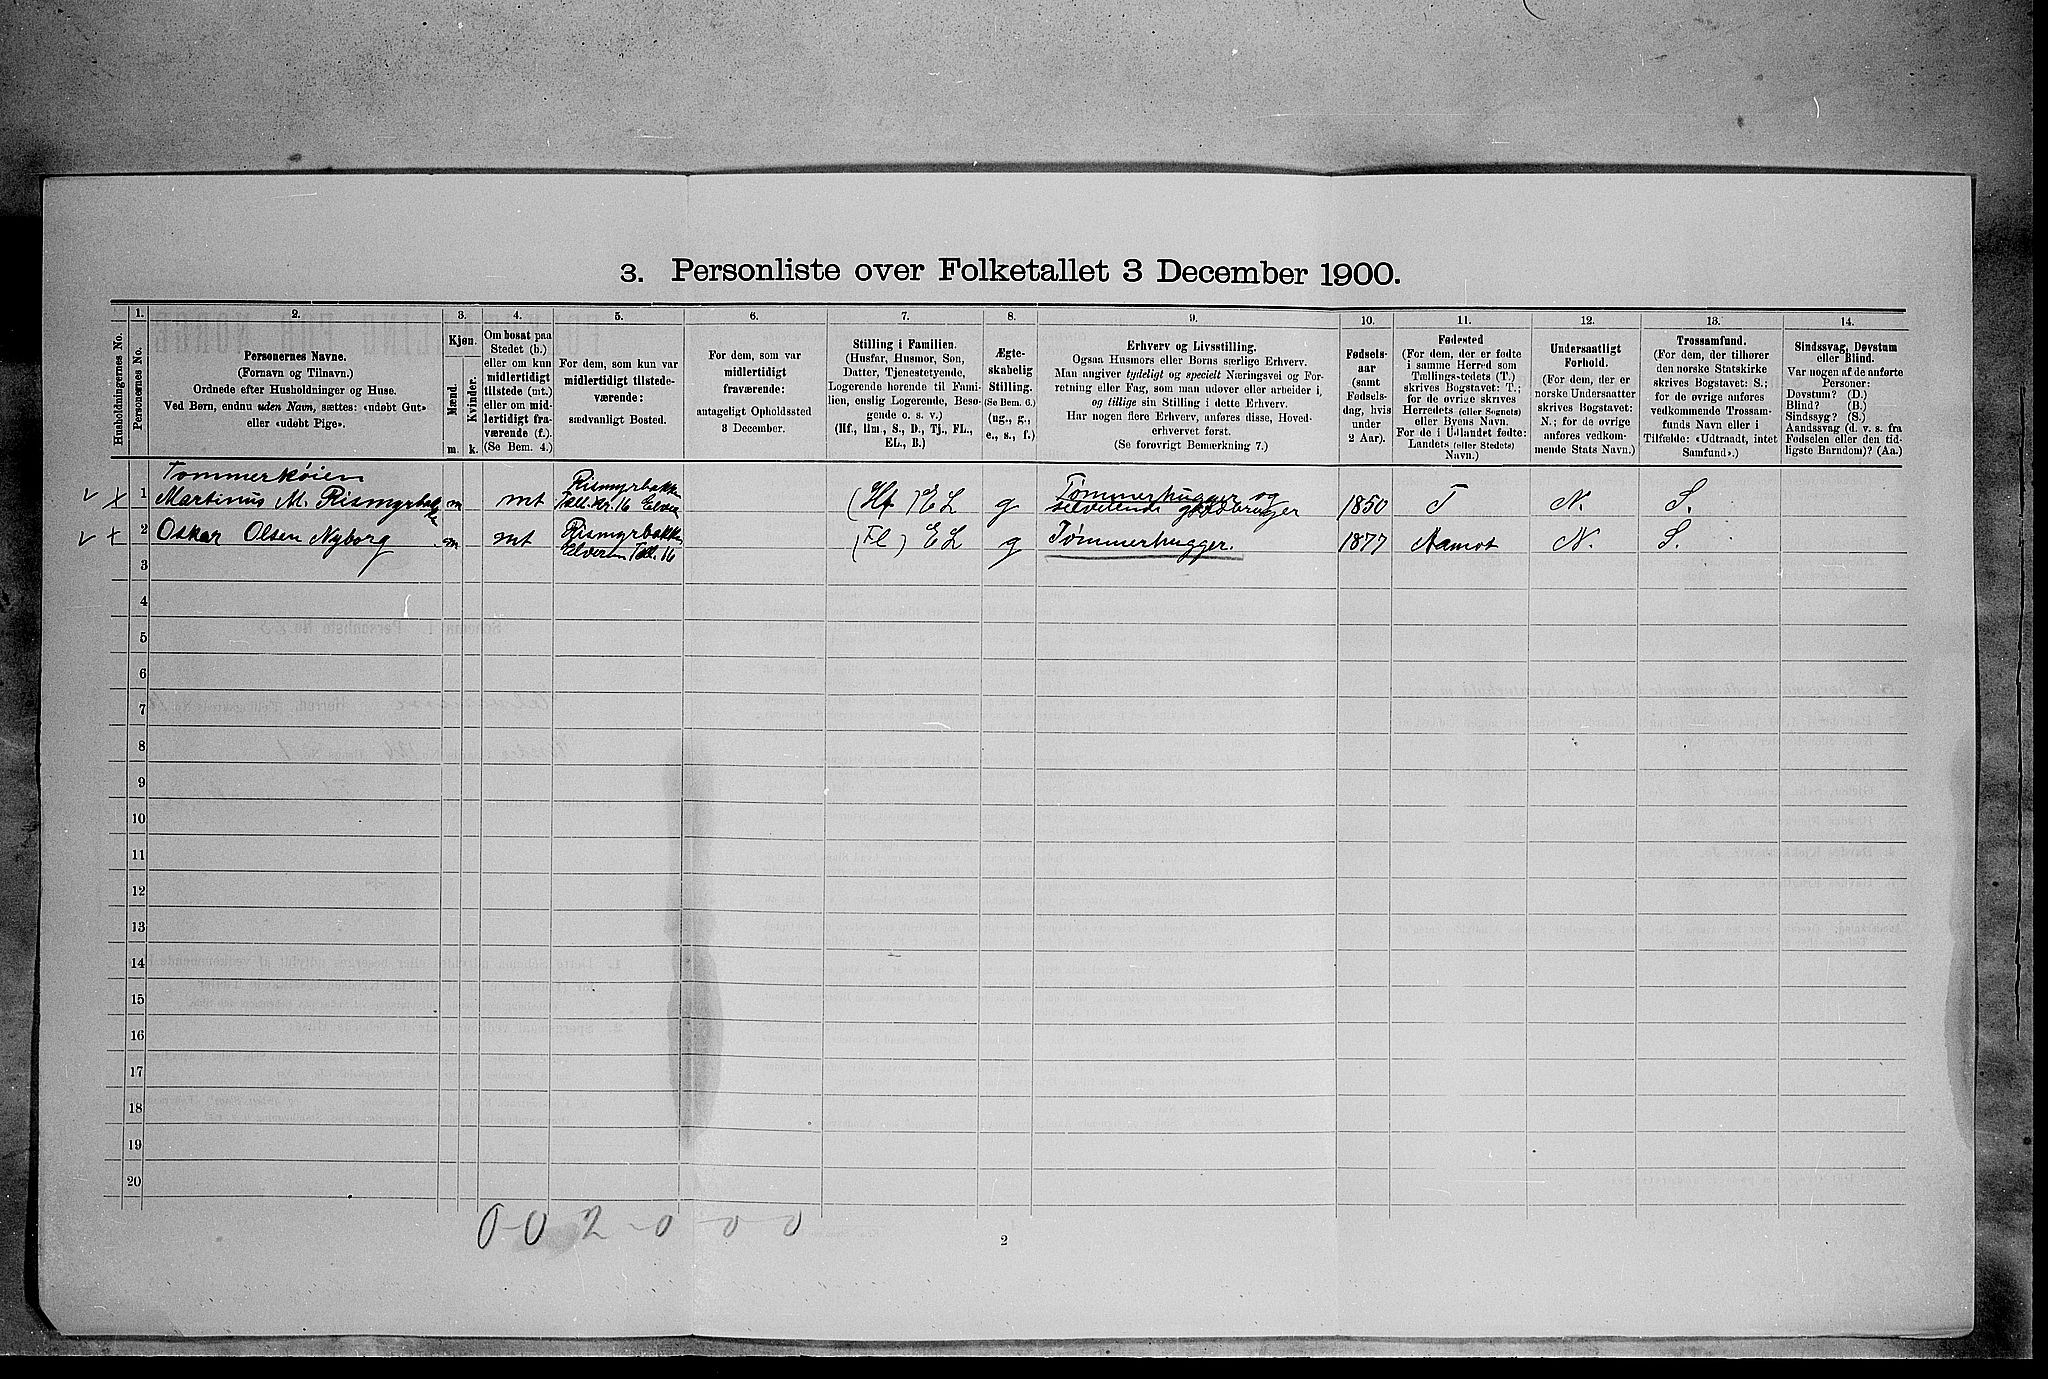 3. Personliste over Folketallet 3 December 1900.
Husholdningernes No.
1.
Personernes No.
2.
Personernes Navne.
(Fornavn og Tilnavn.)
Ordnede efter Husholdninger og Huse.
Ved Børn, endnu uden Navn, sættes: «udøbt Gut»
eller «udøbt Pige».
3.
Kjøn.
Mænd.
Kvinder.
m. k.
4.
Om bosat paa
Stedet (b.)
eller om kun
midlertidigt
tilstede (mt.)
eller om mid-
lertidigt fra-
værende (f.).
(Se Bem. 4.)
5.
For dem, som kun var
midlertidigt tilstede-
værende:
sædvanligt Bosted.
6.
For dem, som var
midlertidigt
fraværende:
antageligt Opholdssted
3 December.
7.
Stilling i Familien.
(Husfar, Husmor, Søn,
Datter, Tjenestetyende,
Logerende hørende til Fami-
lien, enslig Logerende, Besø-
gende o. s. v.)
(Hf., Hm., S., D., Tj., FL.,
EL., B.)
8.
Ægte-
skabelig
Stilling.
(Se Bem. 6.)
(ug., g.,
e., s., f.)
9.
Erhverv og Livsstilling.
Ogsaa Husmors eller Børns særlige Erhverv.
Man angiver tydeligt og specielt Næringsvei og For-
retning eller Fag, som man udøver eller arbeider i,
og tillige sin Stilling i dette Erhverv.
Har nogen flere Erhverv, anføres disse, Hoved-
erhvervet først.
(Se forøvrigt Bemærkning 7.)
10.
Fødsels-
aar
(samt
Fødsels-
dag, hvis
under
2 Aar).
11.
Fødested
(For dem, der er fødte
i samme Herred som
Tællingsstedets (T.)
skrives Bogstavet: T.;
for de øvrige skrives
Herredets (eller Sognets)
eller Byens Navn.
For de i Udlandet fødte:
Landets (eller Stedets)
Navn.)
12.
Undersaatligt
Forhold.
(For dem, der er
norske Undersaatter
skrives Bogstavet:
N.; for de øvrige
anføres vedkom-
mende Stats Navn.)
13.
Trossamfund.
(For dem, der tilhører
den norske Statskirke
skrives Bogstavet: S.;
for de øvrige anføres
vedkommende Trossam-
funds Navn eller i
Tilfælde: «Udtraadt, intet
Samfund».)
14.
Sindssvag, Døvstum
eller Blind.
Var nogen af de anførte
Personer:
Døvstum? (D.)
Blind? (B.)
Sindssyg? (S.)
Aandssvag (d. v. s. fra
Fødselen eller den tid-
ligste Barndom)? (Aa.)
Tømmerkøien
1 Martinus M. Rismyrbakke m mt Rismyrbakke Tæll. kr. 16 Elver (Hf) EL g Tømmerhugger og selveiende gaardbruger 1850 T N. S.
2 Oskar Olsen Nyborg m mt Rismyrbakke Elverum Tæll. 16 (Fl) EL g Tømmerhugger. 1877 Aamot N. S.
3
4
5
6
7
8
9
10
11
12
13
14
15
16
17
18
19
20
0-0 2-0 0-0
2